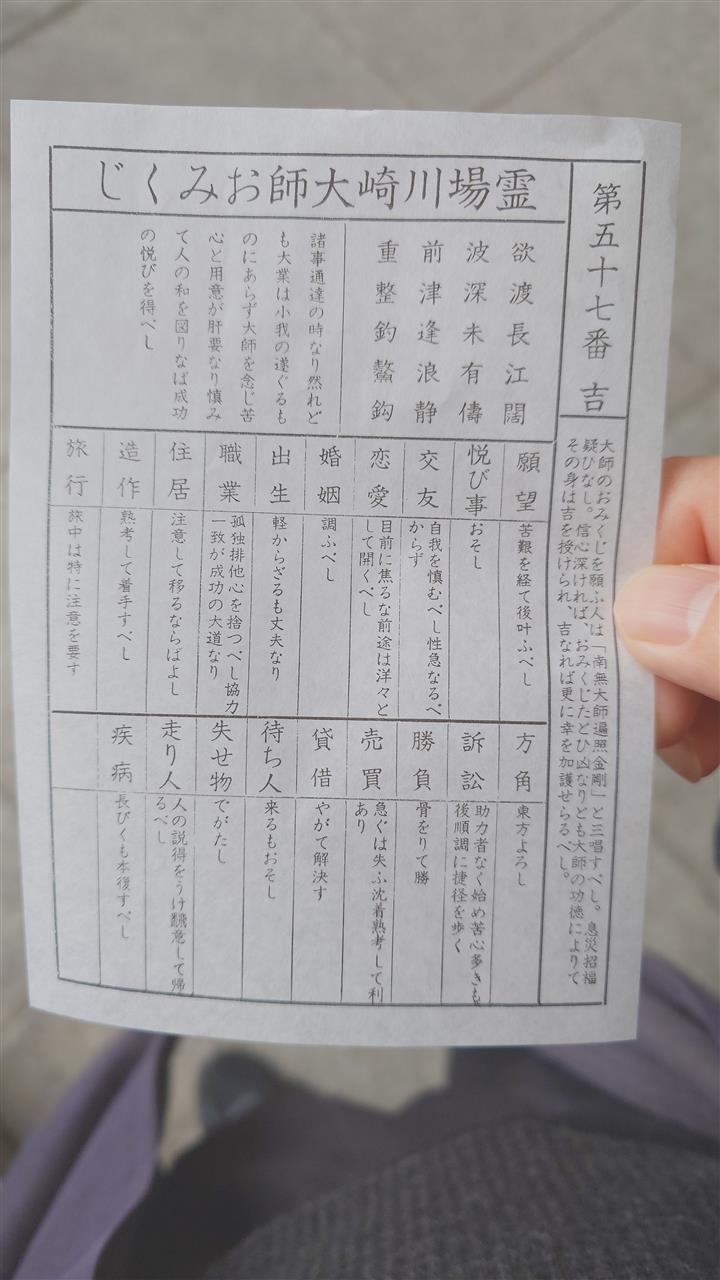 第五十七番 吉
大師のおみくじを願ふ人は「南無大師遍照金剛」と三唱すべし。息災招福
疑ひなし。信心深ければ、おみくじたとひ凶なりとも大師の功徳によりて
その身は吉を授けられ、吉なれば更に幸を加護せらるべし。
霊場川崎大師おみくじ
欲渡長江闊
波深未有儔
前津逢浪静
重整釣鰲鈎
諸事通達の時なり然れど
も大業は小我の遂ぐるも
のにあらず大師を念じ苦
心と用意が肝要なり慎み
て人の和を図りなば成功
の悦びを得べし
願望
苦艱を経て後叶ふべし
悦び事
おそし
交友
自我を慎むべし性急なるべ
からず
恋愛
目前に焦るな前途は洋々と
して開くべし
婚姻
調ふべし
出生
軽からざるも丈夫なり
職業
孤独排他心を捨つべし協力
一致が成功の大道なり
住居
注意して移るならばよし
造作
熟考して着手すべし
旅行
旅中は特に注意を要す
方角
東方よろし
訴訟
助力者なく始め苦心多きも
後順調に捷径を歩く
勝負
骨をりて勝
売買
急ぐは失ふ沈着熟考して利
あり
貸借
やがて解決す
待ち人
来るもおそし
失せ物
でがたし
走り人
人の説得をうけ飜意して帰
るべし
疾病
長びくも本復すべし